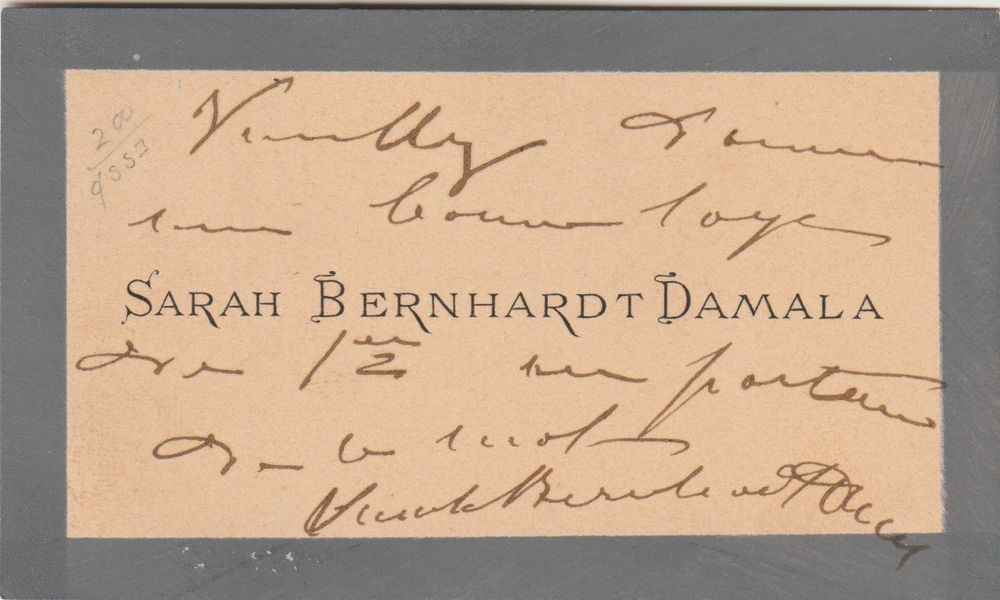 200
4553
Veuillez donner
une bonne loge
SARAH BERNHARDT DAMALA
de 1re au porteur
de ce mot
Sarah Bernhardt